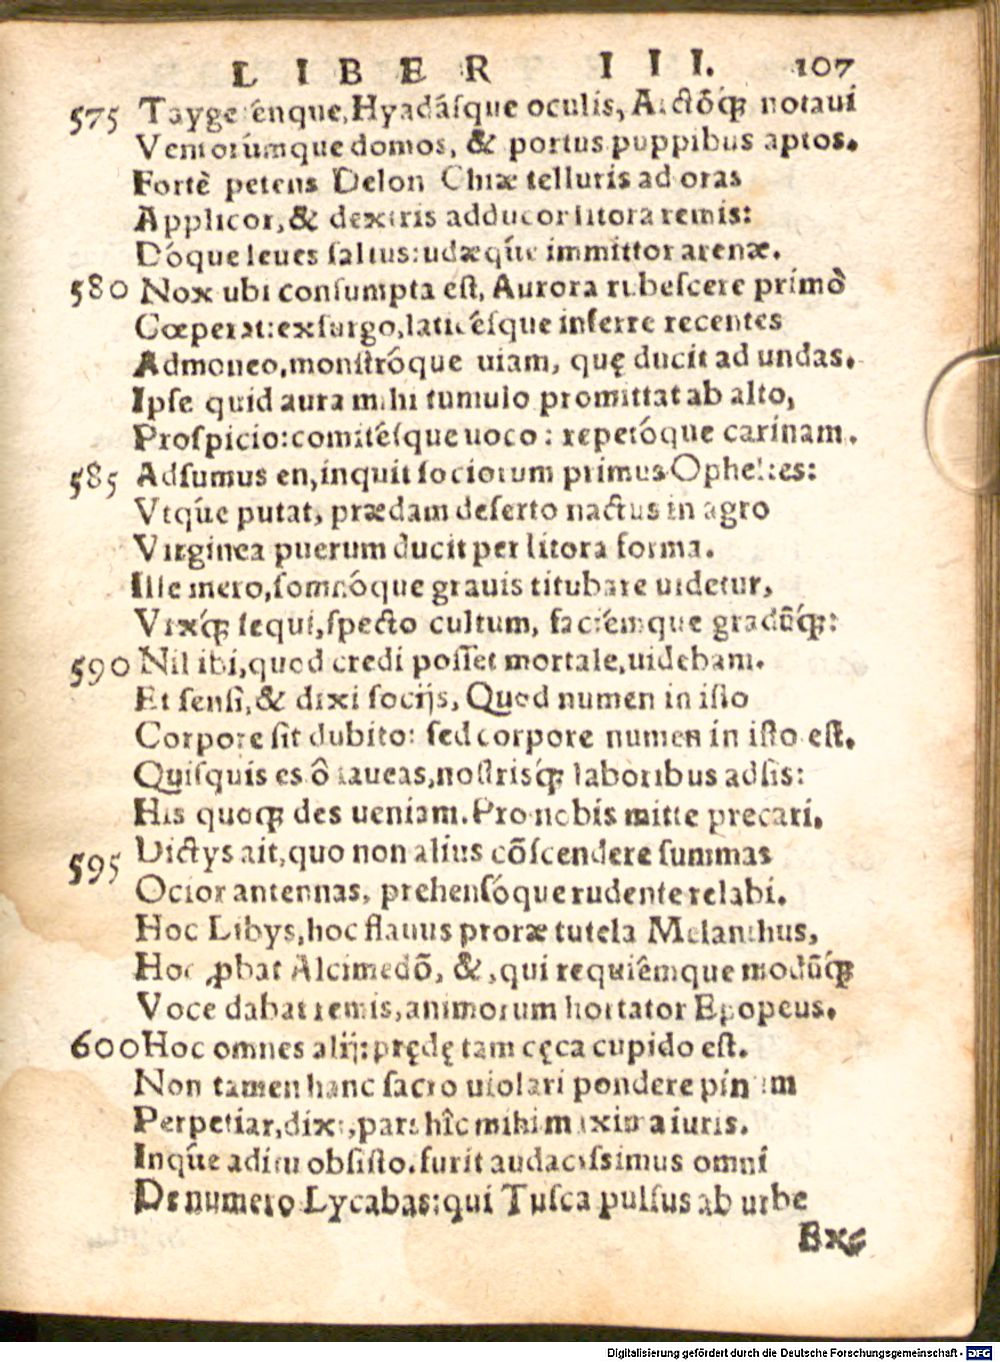 LIBER III. 107
575 Taygeténque, Hyadásque oculis, Arctõq́; notaui
Ventorúmque domos, & portus puppibus aptos.
Fortè petens Delon Chiæ telluris ad oras
Applicor, & dextris adducor litora remis:
Dóque leues saltus: udæq́ue immittor arenæ.
580 Nox ubi consumpta est, Aurora rubescere primò
Cœperat: exsurgo, laticésque inferre recentes
Admoneo, monstróque uiam, quę ducit ad undas.
Ipse quid aura mihi tumulo promittat ab alto,
Prospicio: comitésque uoco: repetóque carinam.
585 Adsumus en, inquit sociorum primus Opheltes:
Vtq́ue putat, prædam deserto nactus in agro
Virginea puerum ducit per litora forma.
Ille mero, somnóque grauis titubare uidetur,
Vixq́; sequi, specto cultum, faciémque gradũq́;:
590 Nil ibi, quod credi posset mortale, uidebam.
Et sensi, & dixi socijs, Quod numen in isto
Corpore sit dubito: sed corpore numen in isto est.
Quisquis es ô faueas, nostrisq́; laboribus adsis:
His quoq; des ueniam. Pro nobis mitte precari.
595 Dictys ait, quo non alius cõscendere summas
Ocior antennas, prehensóque rudente relabi.
Hoc Libys, hoc flauus proræ tutela Melanthus,
Hoc ꝓbat Alcimedõ, &, qui requiêmque modũq́;
Voce dabat remis, animorum hortator Epopeus.
600 Hoc omnes alij: prędę tam cęca cupido est.
Non tamen hanc sacro uiolari pondere pinum
Perpetiar, dixi, pars hîc mihi maxima iuris.
Inq́ue aditu obsisto. furit audacissimus omni
De numero Lycabas: qui Tusca pulsus ab urbe
Ex-
Digitalisierung gefördert durch die Deutsche Forschungsgemeinschaft - DFG